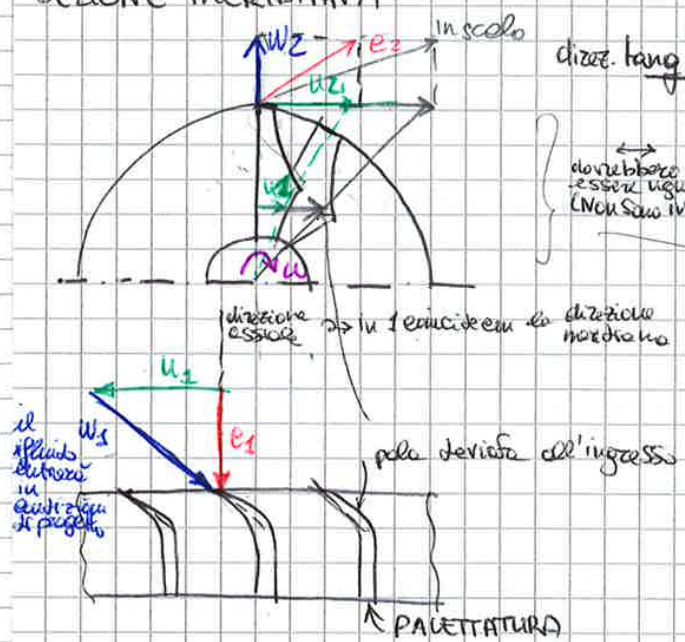 SEZIONE MERIDIANA
w2
c2
in scala
direz. tang
u2
dovrebbero
essere ugu
(NON SONO IN
u1
ω
direzione
assiale
in 1 coincide con la direzione
meridiana
u1
w1
c1
il
fluido
entrerà
in
condizioni
di progetto
pala deviata all'ingresso
PALETTATURA